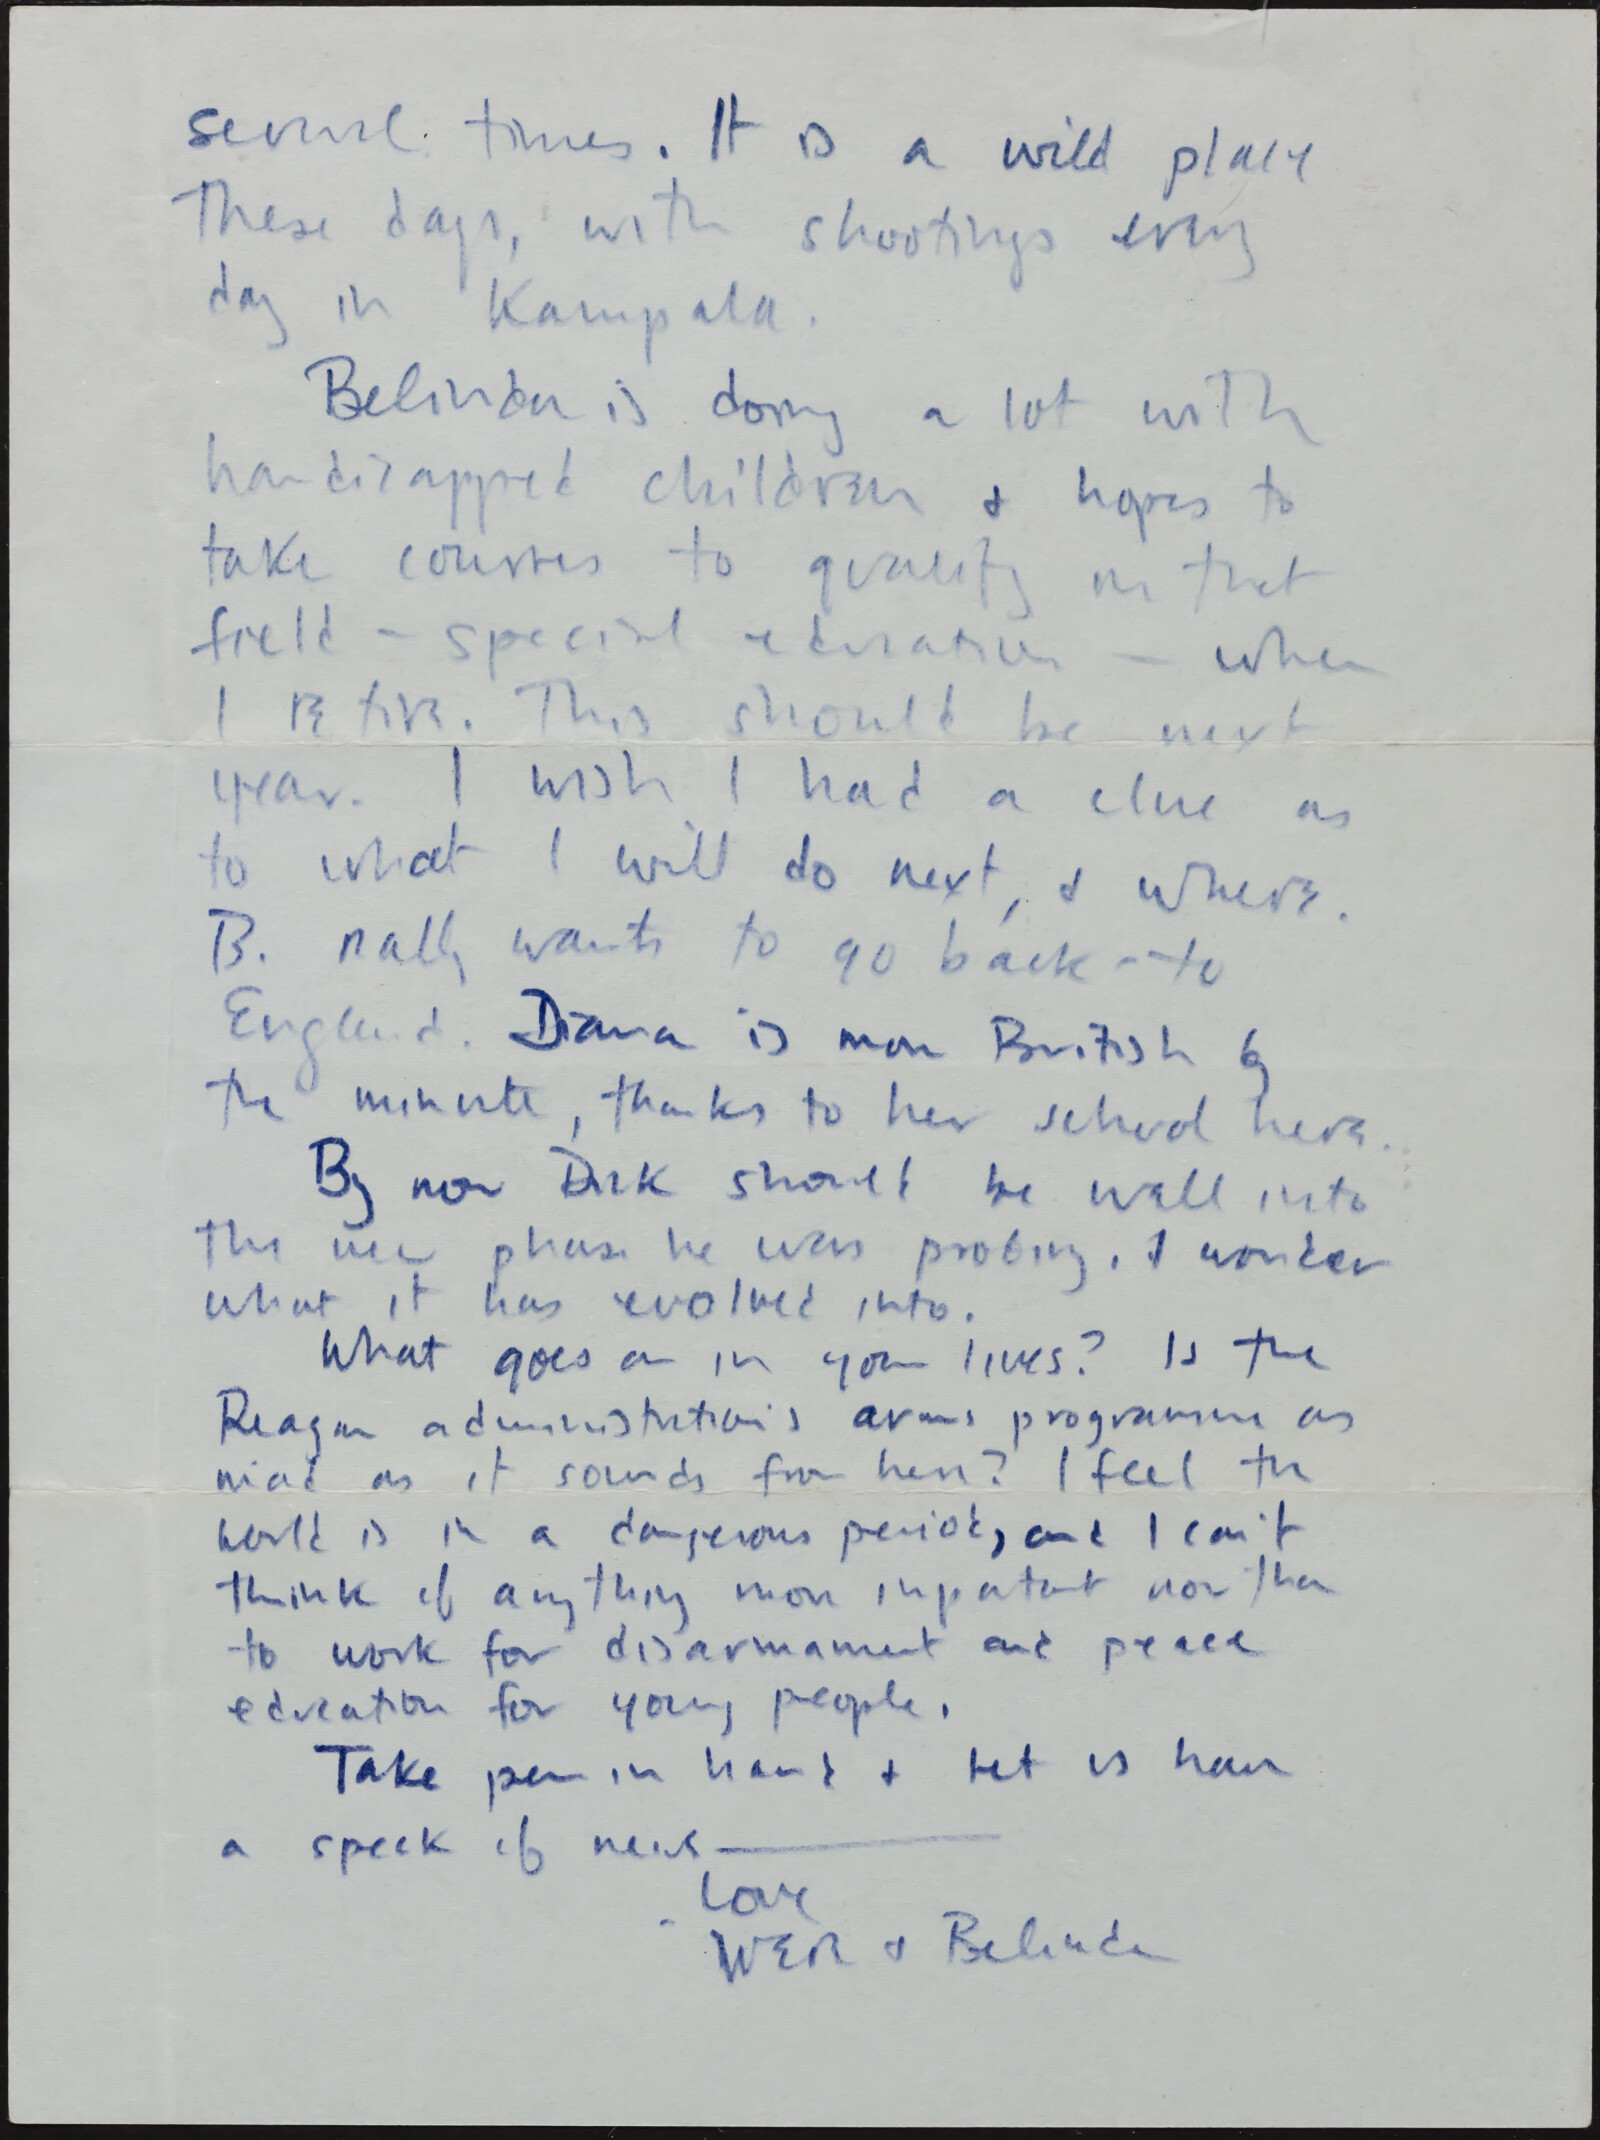 several times. It is a wild place
These days, with shootings every
day in Kampala.
Belinda is doing a lot with
handicapped children & hopes to
take courses to qualify in that
field - special education - when
I retire. This should be next
year. I wish I had a clue as
to what I will do next, & where.
B. really wants to go back - to
England. Diana is more British by
the minute, thanks to her school here.
By now Dirk should be well into
the new phase he was probing. I wonder
what it has evolved into.
What goes on in your lives? Is the
Reagan administration's arms programme as
mad as it sounds from here? I feel the
world is in a dangerous period, and I can't
think of anything more important now than
to work for disarmament and peace
education for young people.
Take pen in hand & let us have
a speck of news
Love
WER & Belinda